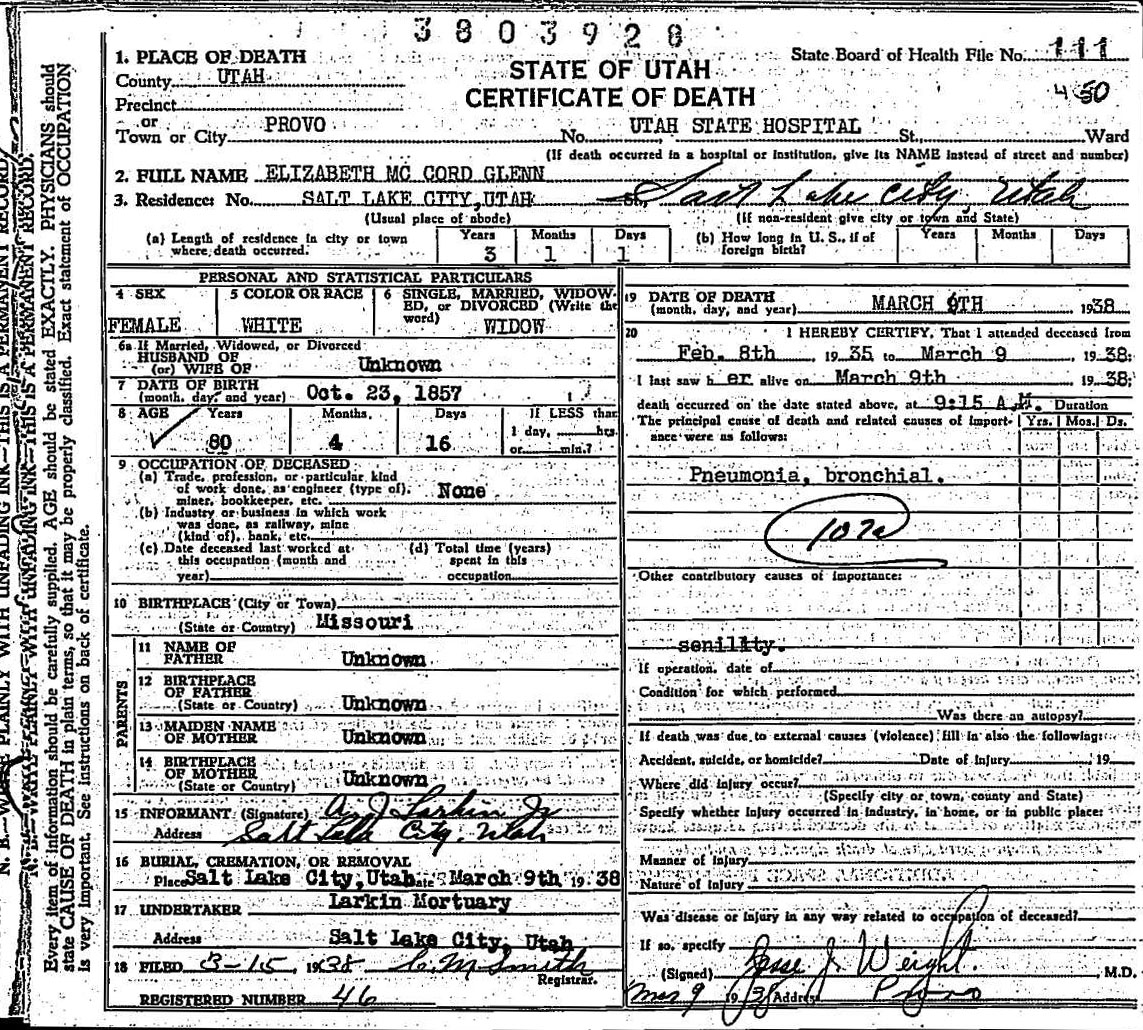 3803928
State Board of Health File No. 111
1. PLACE OF DEATH
County UTAH
STATE OF UTAH
CERTIFICATE OF DEATH
Precinct
or
Town or City PROVO No. UTAH STATE HOSPITAL St. Ward
(If death occurred in a hospital or institution, give its NAME instead of street and number)
2. FULL NAME ELIZABETH MC CORD GLENN
3. Residence: No. SALT LAKE CITY, UTAH St. Salt Lake City, Utah
(Usual place of abode) (If non-resident give city or town and State)
(a) Length of residence in city or town where death occurred. Years 3 Months 1 Days 1
(b) How long in U. S., if of foreign birth? Years Months Days
PERSONAL AND STATISTICAL PARTICULARS
4 SEX FEMALE
5 COLOR OR RACE WHITE
6 SINGLE, MARRIED, WIDOW-
ED, or DIVORCED (Write the
word) WIDOW
6a If Married, Widowed, or Divorced
HUSBAND OF
(or) WIFE OF Unknown
7 DATE OF BIRTH
(month, day, and year) Oct. 23, 1857
8 AGE Years 80 Months 4 Days 16 If LESS than
1 day, hrs
or min.?
9 OCCUPATION OF DECEASED
(a) Trade, profession, or particular kind
of work done, as engineer (type of),
miner, bookkeeper, etc. None
(b) Industry or business in which work
was done, as railway, mine
(kind of), bank, etc.
(c) Date deceased last worked at
this occupation (month and
year)
(d) Total time (years)
spent in this
occupation
10 BIRTHPLACE (City or Town)
(State or Country) Missouri
PARENTS
11 NAME OF
FATHER Unknown
12 BIRTHPLACE
OF FATHER
(State or Country) Unknown
13 MAIDEN NAME
OF MOTHER Unknown
14 BIRTHPLACE
OF MOTHER
(State or Country) Unknown
15 INFORMANT (Signature) A. J. Larkin Jr
Address Salt Lake City, Utah
16 BURIAL, CREMATION, OR REMOVAL
Place Salt Lake City, Utah Date March 9th 1938
17 UNDERTAKER Larkin Mortuary
Address Salt Lake City, Utah
18 FILED 3-15, 1938 C. M Smith
Registrar.
REGISTERED NUMBER 46
19 DATE OF DEATH
(month, day, and year) MARCH 9TH 1938
20 I HEREBY CERTIFY, That I attended deceased from
Feb. 8th 1935 to March 9 1938;
I last saw h er alive on March 9th 1938;
death occurred on the date stated above, at 9:15 A.M. Duration
The principal cause of death and related causes of import-
ance were as follows: Yrs. Mos. Ds.
Pneumonia, bronchial.
107a
Other contributory causes of importance:
senility.
If operation, date of
Condition for which performed
Was there an autopsy?
If death was due to external causes (violence) fill in also the following:
Accident, suicide, or homicide? Date of Injury 19
Where did injury occur?
(Specify city or town, county and State)
Specify whether injury occurred in industry, in home, or in public place:
Manner of Injury
Nature of Injury
Was disease or injury in any way related to occupation of deceased?
If so, specify
(Signed) Jesse J. Weight. M.D.
Mar 9 1938 Address Provo
N. B.—WRITE PLAINLY WITH UNFADING INK—THIS IS A PERMANENT RECORD.
Every item of information should be carefully supplied. AGE should be stated EXACTLY. PHYSICIANS should
state CAUSE OF DEATH in plain terms, so that it may be properly classified. Exact statement of OCCUPATION
is very important. See instructions on back of certificate.